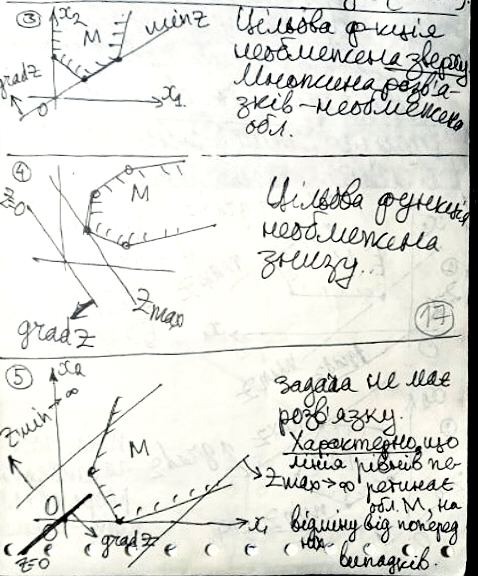 ③ x₂ M min z
grad z
0 x₁
Цільова ф-кція
необмежена зверху
Множина розв'я-
зків – необмежена
обл.
④ M
z=0
grad z
Zmax
Цільова функція
необмежена
знизу.
17
⑤ x₂
Zmin→∞
M
0
x₁
grad z
z=0
Zmax→∞
Задача не має
розв'язку.
Характерно, що
лінія рівнів пе-
ретинає
обл. M, на
відміну від поперед
них
випадків.